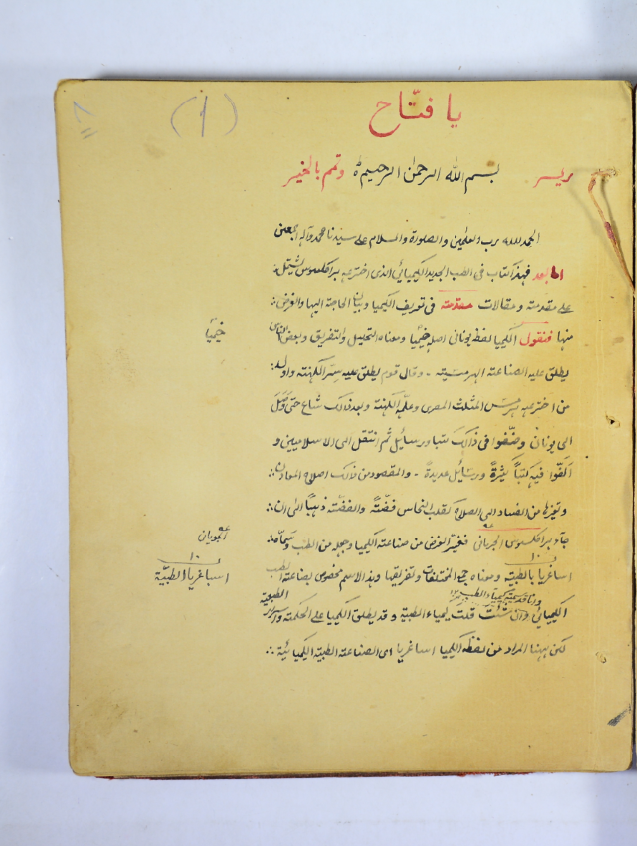 (١)
يا فتّاح
ربّ يسر بسم الله الرحمن الرحيم وتمم بالخير
الحمد لله رب العلمين والصلوة والسلام على سيدنا محمد وآله اجمعين
اما بعد فهذا كتاب فى الطب الجديد الكيميائي الذى اخترعه براكلسوس يشتمل
على مقدمته ومقالات مقدمته فى تعريف الكيميا وبيان الحاجة اليها والغرض
منها فنقول الكيميا لفظ يونانى اصله خيميا ومعناه التحليل والتفريق وبعض
خيميا
يطلق عليه الصناعته الهرمسيه - وقال قوم يطلق عليه سر الكهنته واول
من اخترعه هرمس المثلث المصرى وعلّمه الكهنته وبعد ذالك شاع حتى وصل
الى يونان وصنّفوا فى ذالك كتبا ورسائل ثم انتقل الى الاسلاميين و
الّفوا فيه كتباً كثيرةً ورسائل عديدةً - والمقصود من ذالك اصلاح المعادن
وتغيرها من الفساد الى الصلاح كقلب النحاس فضّتهً والفضّته ذهباً الى ان
جاء براكلسوس الجرمانى فغير الغرض من صناعته الكيميا وجعله من الطب وسماه
اساغريا بالطبيّه ومعناه جمع المختلفات وتفريقها وهذا الاسم مخصوص بصناعته الطب
اسباغريا الطبيّة
الكيميائى وان شئت قلت كيمياء الطبية وقد يطلق الكيميا على الحكمته واسرار الطبيعية
وانا قد سميته كيمياء الطب
لكن ههنا المراد من لفظه الكيميا اساغريا اى الصناعته الطبيّه الكيميائيّة